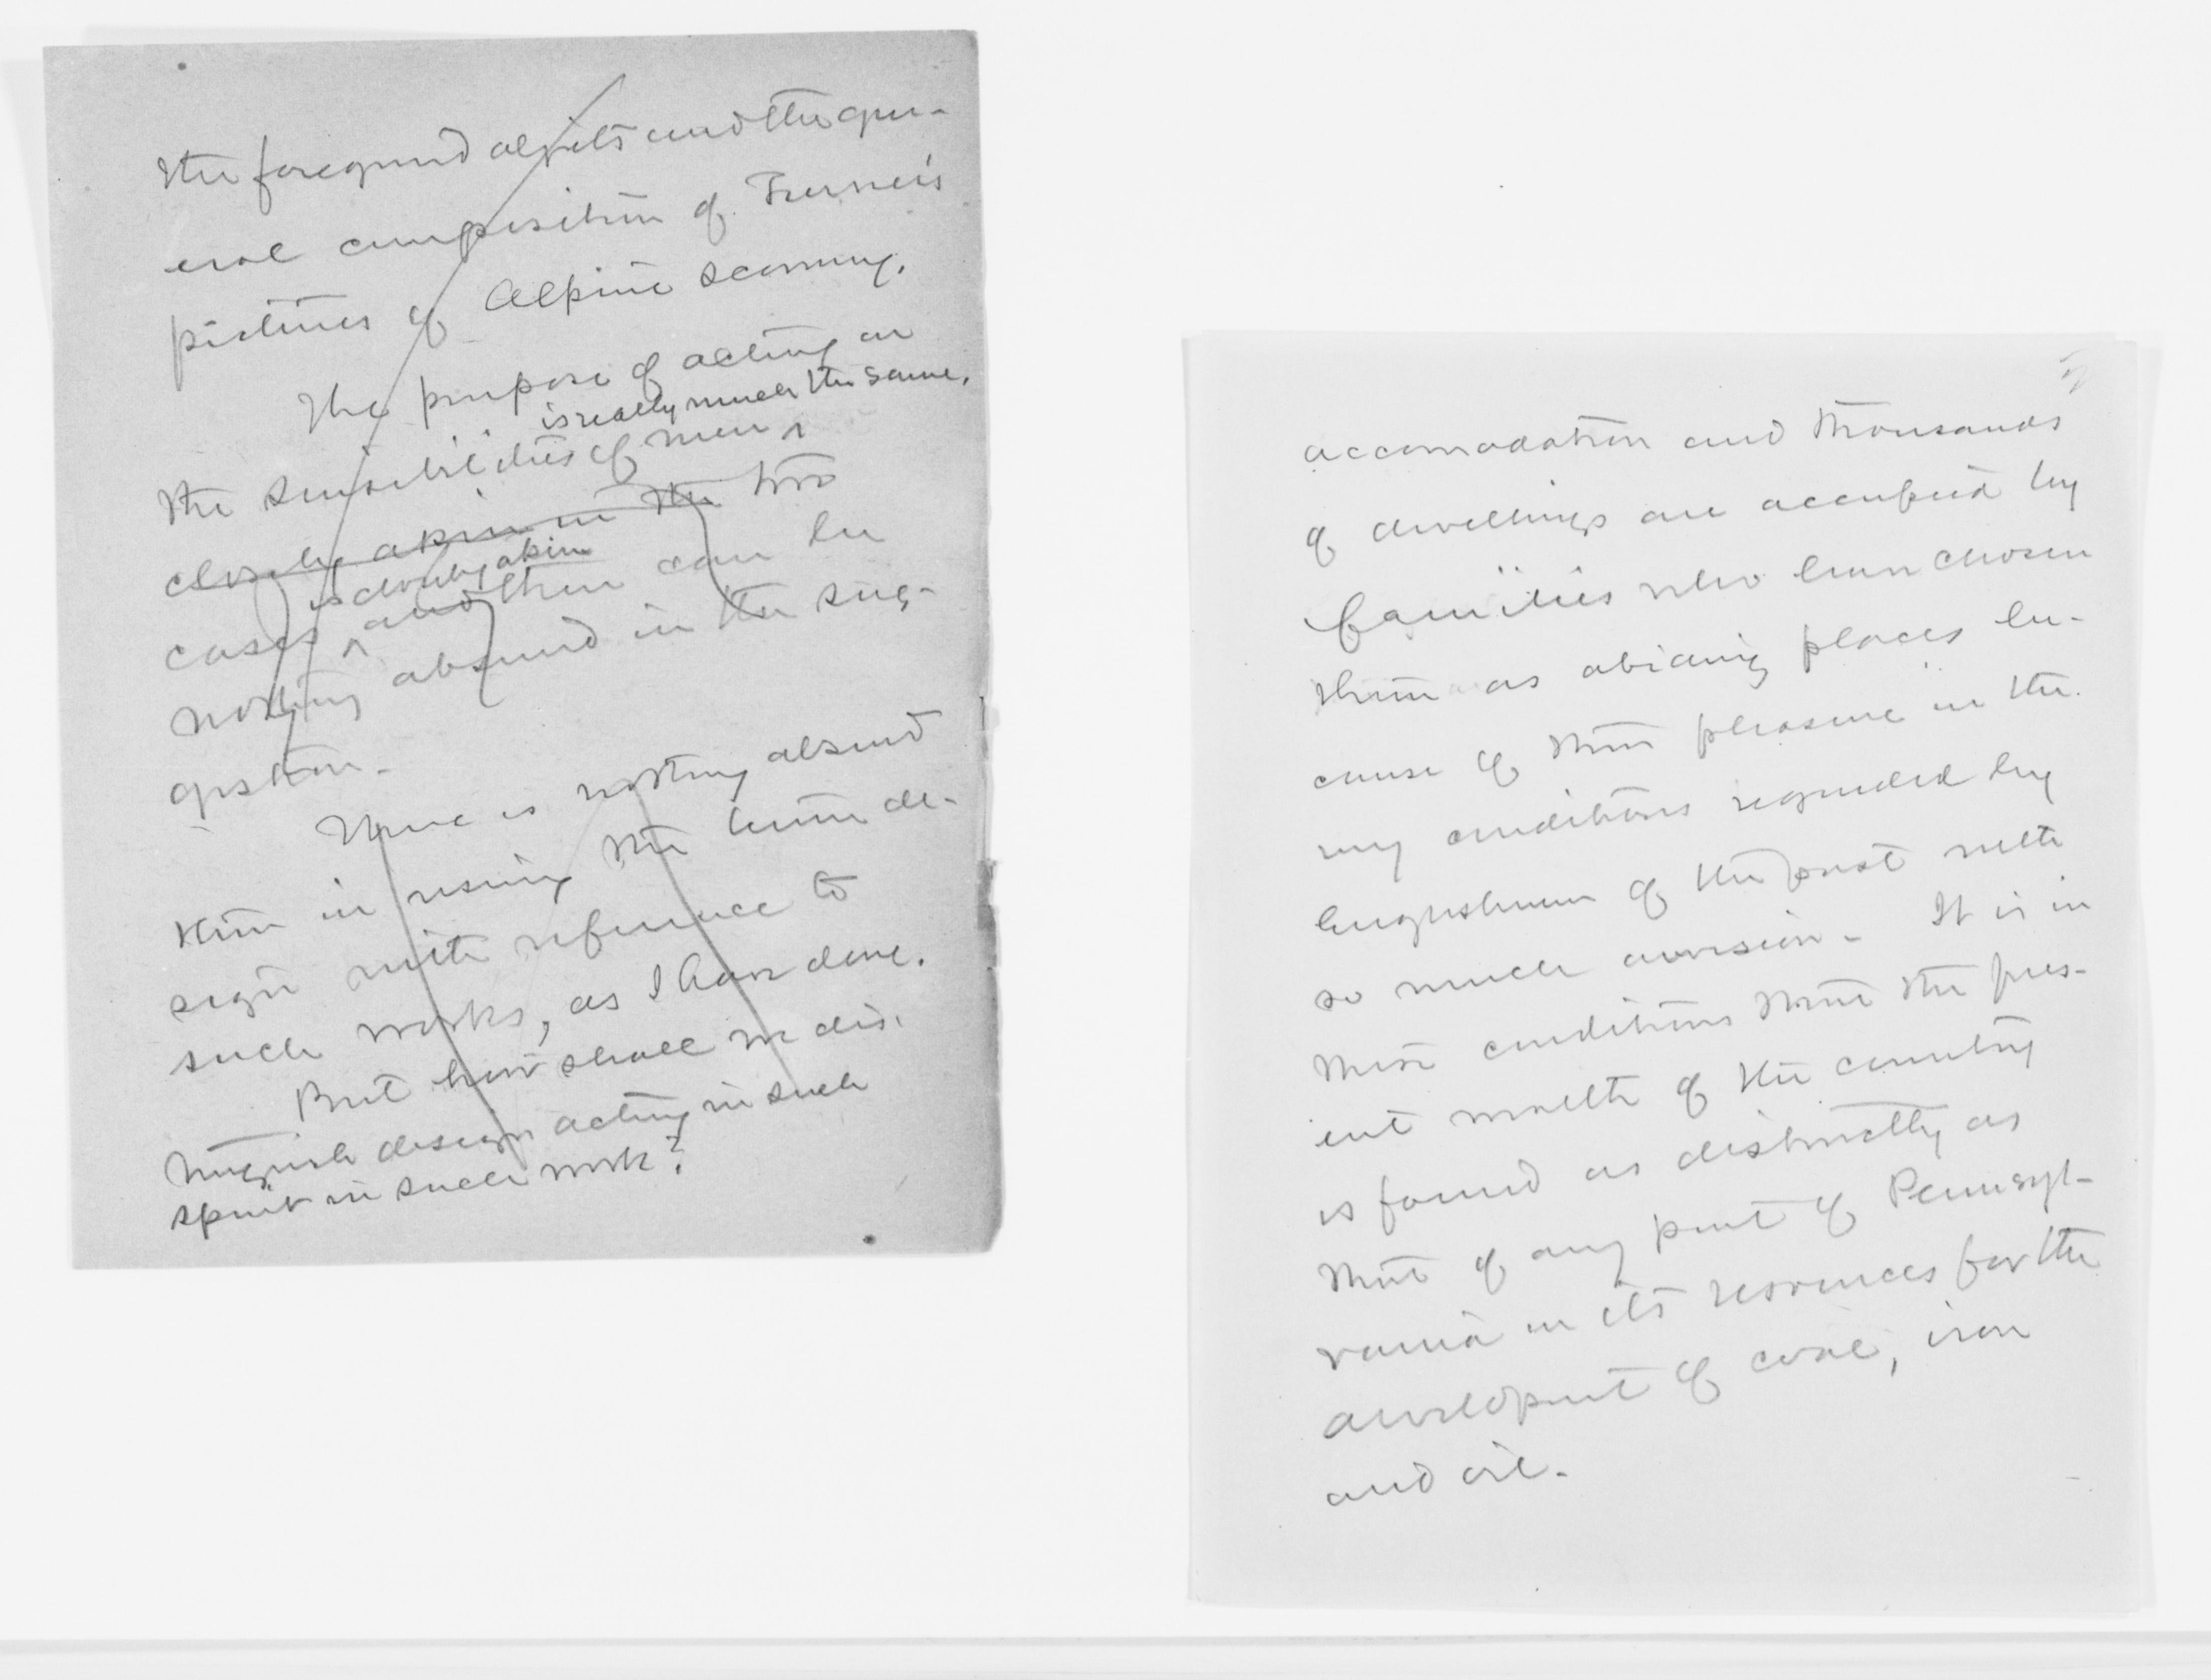 the foreground objects and the gen-
eral composition of Turner's
pictures of Alpine scenery.
The purpose of acting on
is really much the same.
the sensibilities of men ^
closely akin in the two
is closely akin
cases ^ and there can be
nothing absurd in the sug-
gestion.
There is nothing absurd
then in using the term de-
sign with reference to
such works, as I have done.
But how shall we dis-
tinguish design acting in such
spirit in such work?
accomodation and thousands
of dwellings are occupied by
families who have chosen
them as abiding places be-
cause of their pleasure in the
very conditions regarded by
Englishmen of the past with
so much aversion. It is in
these conditions that the pres-
ent wealth of the country
is found as distinctly as
that of any part of Pennsyl-
vania in its resources for the
development of coal, iron
and oil.